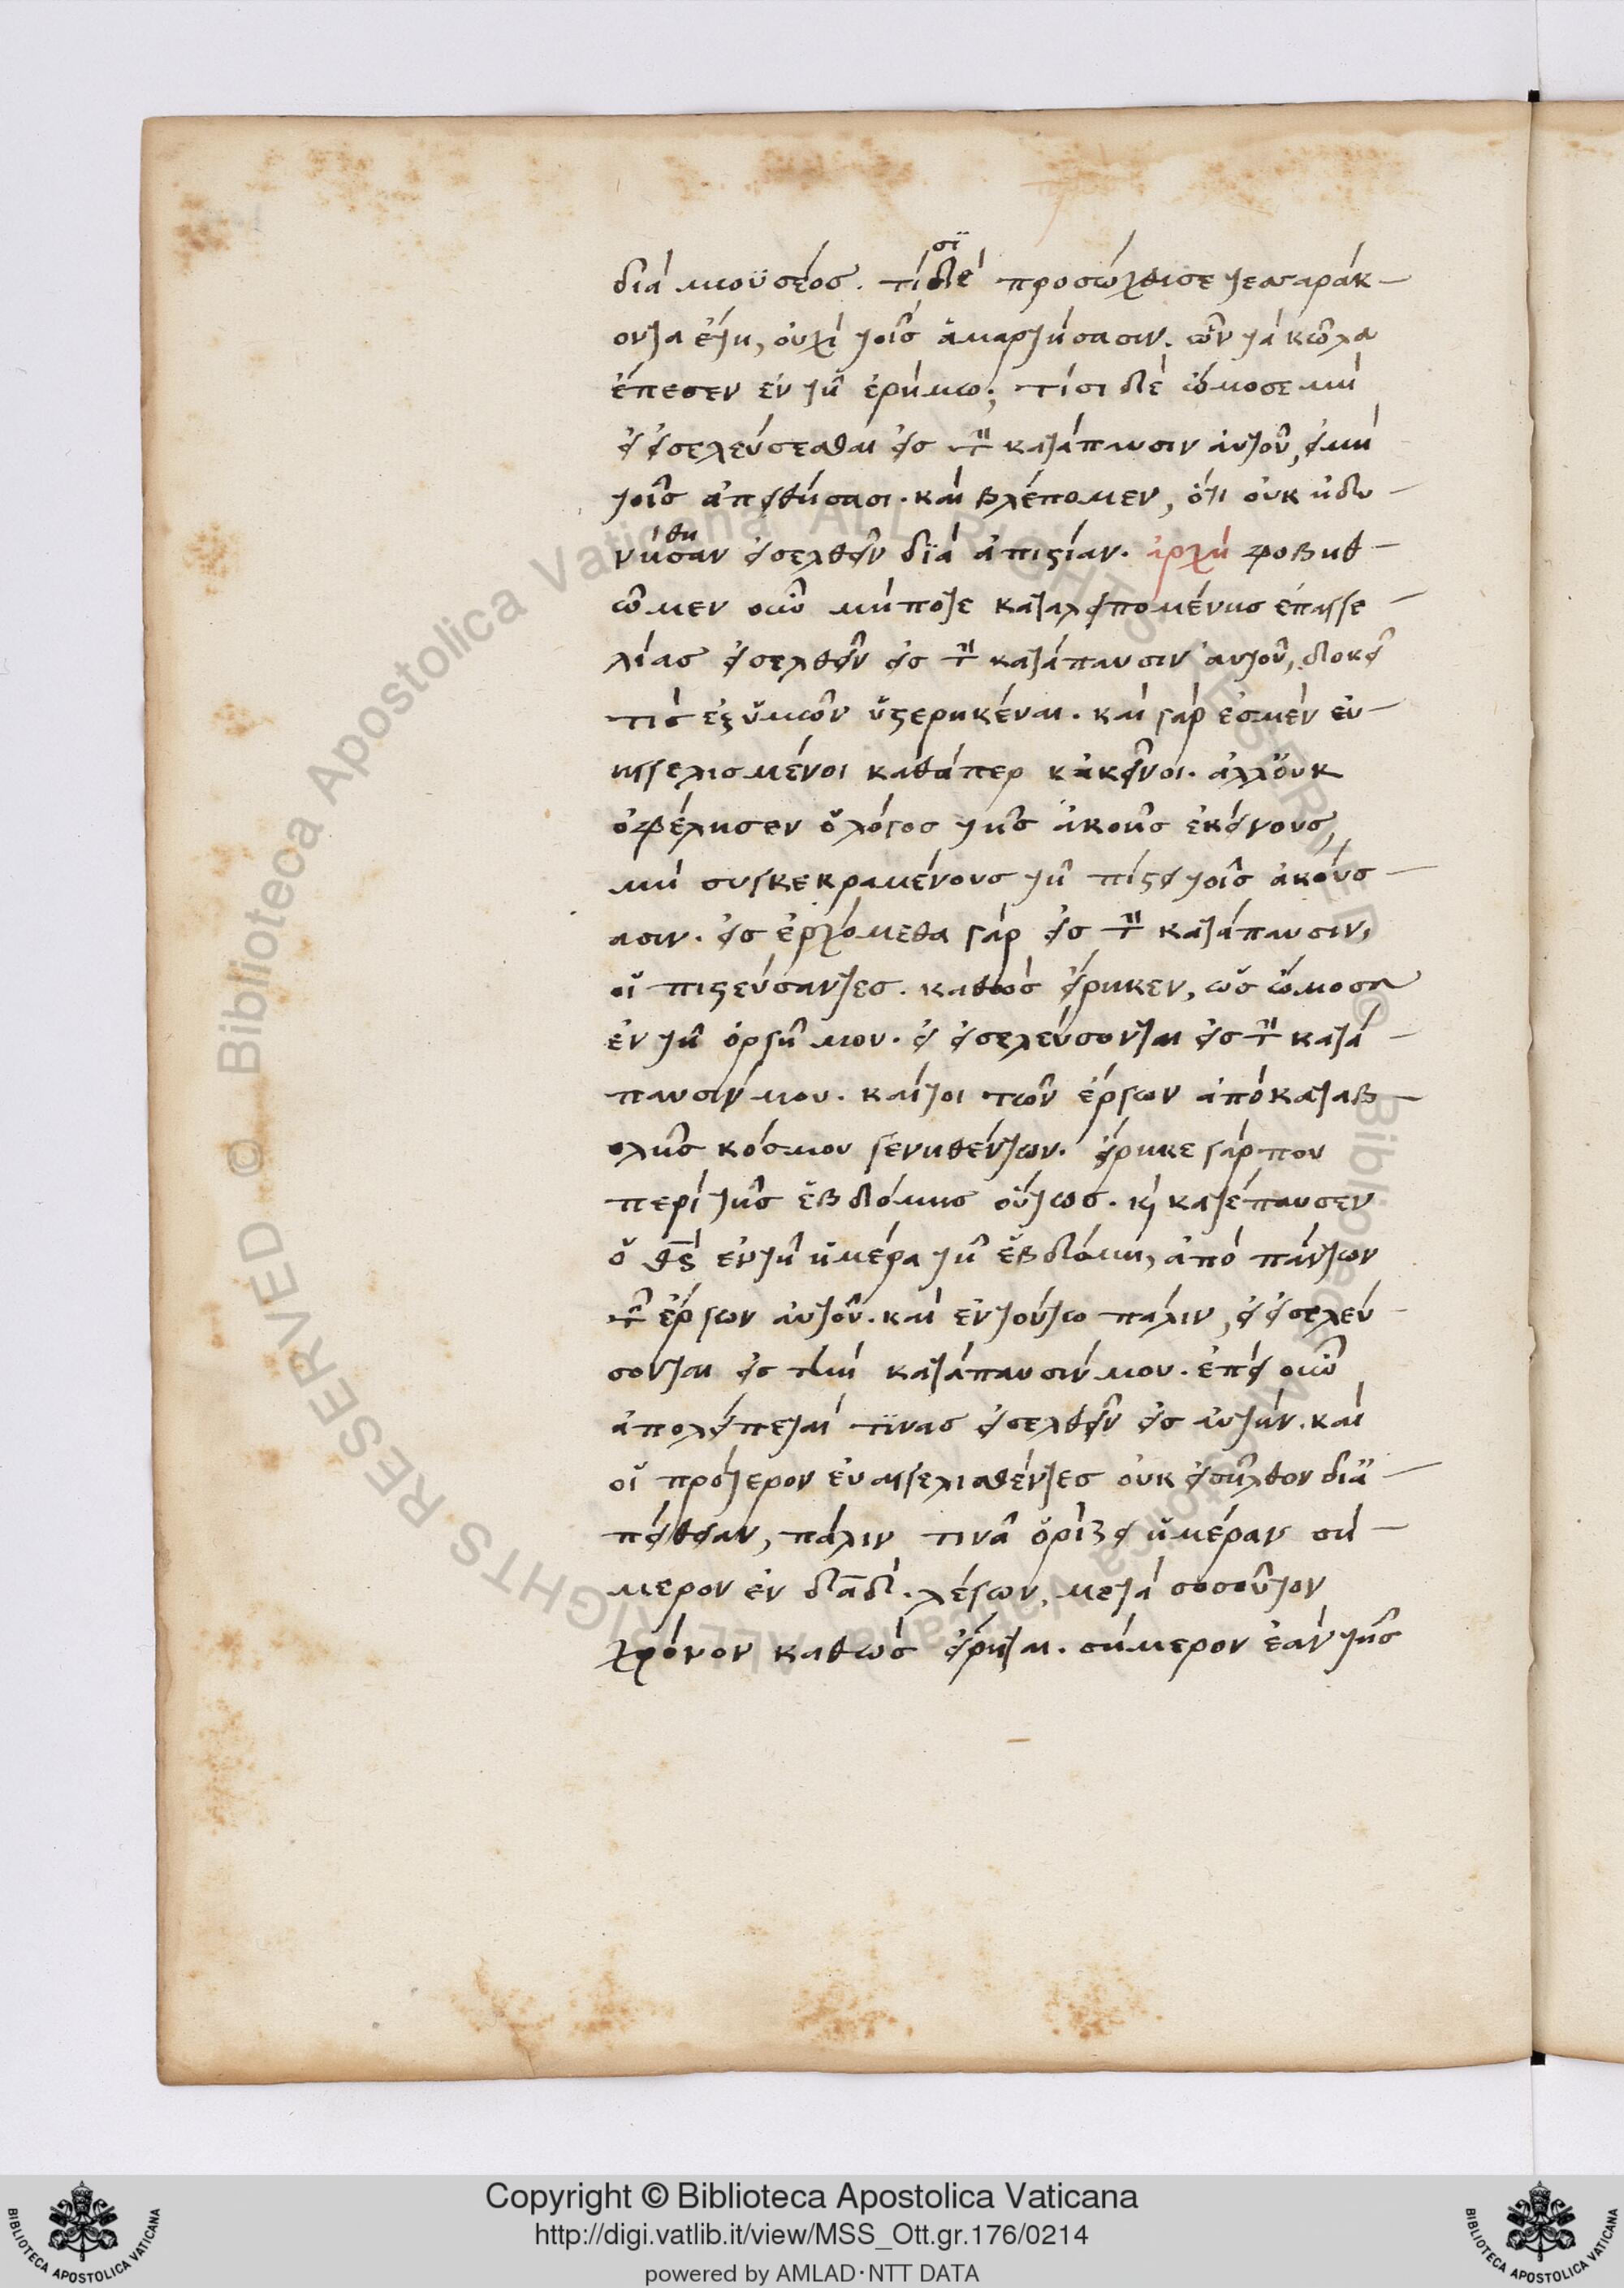 διὰ μοϋσέος. τίσϊ δὲ προσώχθισε τεσσαράκ-
οντα έτη, ουχὶ τοῖς ἁμαρτήσασιν. ὧν τὰ κῶλα
έπεσεν εν τῆ ἐρήμω; τίσι δὲ ώμοσε μὴ
εἰσελεύσεσθαι εἰς τὴν κατάπαυσιν ἀυτοῦ, ειμὴ
τοῖς ἀπειθήσασι. και βλέπομεν, ότι ουκ ηδυ-
νήθησαν εισελθεῖν δϊὰ ἀπιστίαν. ἀρχὴ φοβηθ-
ῶμεν οὖν μήποτε καταλειπομένης ἐπαγγε-
λίας εισελθεῖν εις τὴν κατάπαυσιν ἀυτοῦ, δοκεῖ
τὶς εξ ὑμῶν ὑστερηκέναι. και γάρ ἐσμεν ευ-
ηγγελισμένοι καθάπερ κακεῖνοι. αλλ'ουκ
οφέλησεν ὁ λόγος τῆς ἀκοῆς ἐκείνους,
μὴ συγκεκραμένους τῆ πίστει τοῖς ἀκούσ-
ασιν. εις ἐρχόμεθα γάρ εις τὴν κατάπαυσιν,
οἱ πιστεύσαντες. καθὼς είρηκεν, ὡς ὤμοσα
ἐν τῆ ὀργῆ μου. ει εισελεύσονται εις τὴν κατά-
παυσίν μου. καίτοι τῶν έργων ἀπὸ καταβ-
ολῆς κόσμου γενηθέντων. είρηκε γάρ που
περὶ τῆς ἑβδόμης οὕτως. κ κατέπαυσεν
ὁ θς εν τῆ ἡμέρα τῆ ἑβδόμη, ἀπὸ πάντων
τῶν έργων ἀυτοῦ. και εν τούτω πάλιν, ει εισελεύ-
σονται εις τὴν κατάπαυσίν μου. ἐπεὶ οὖν
ἀπολείπεται τϊνας εισελθεῖν εις ἀυτήν. και
οἱ πρότερον ευαγγελισθέντες ουκ εισῆλθον διἀ-
πείθειαν, πάλιν τινὰ ὁρίζει ἡμέραν σή-
μερον ἐν δᾱδ. λέγων, μετὰ σοσοῦτον
χρόνον καθὼς είρηται. σήμερον ἐὰν τῆς
Copyright © Biblioteca Apostolica Vaticana
http://digi.vatlib.it/view/MSS_Ott.gr.176/0214
powered by AMLAD·NTT DATA